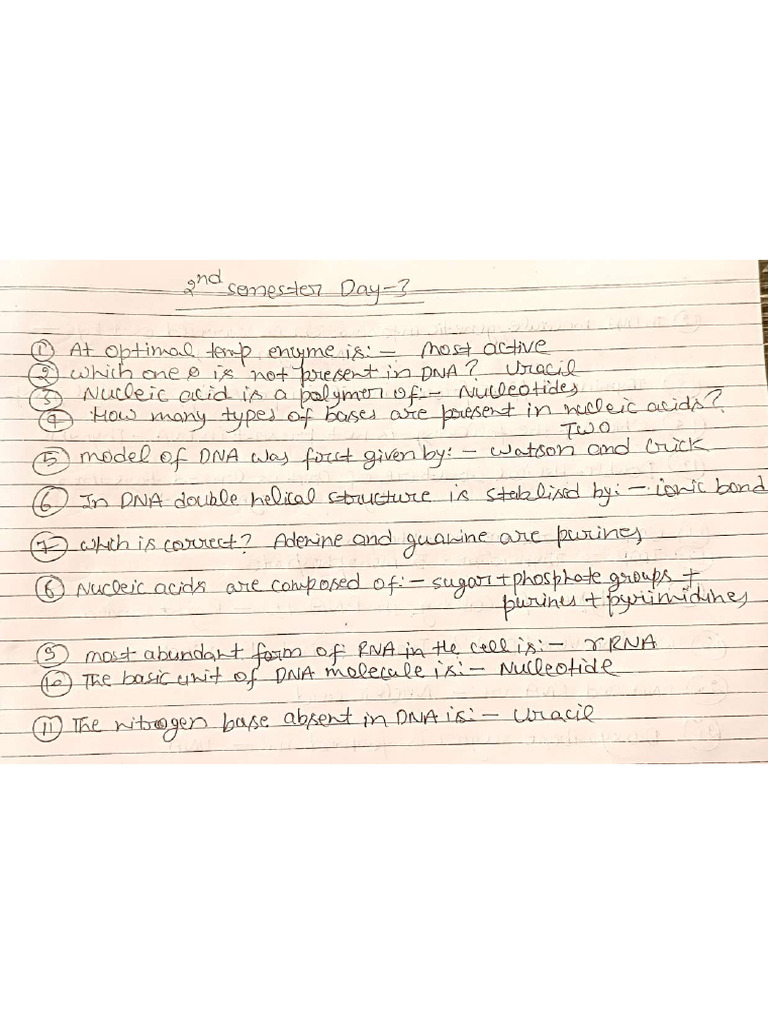 2nd semester Day-3
① At optimal temp enzyme is:- Most active
② which one is not present in DNA? Uracil
③ Nucleic acid is a polymer of:- Nucleotides
④ How many types of bases are present in nucleic acids?
TWO
⑤ model of DNA was first given by:- Watson and Crick
⑥ In DNA double helical structure is stablised by:- ionic bond
⑦ which is correct? Adenine and guanine are purines
⑧ Nucleic acids are composed of:- sugar+phosphate groups +
purines + pyrimidines
⑨ most abundant form of RNA in the cell is:- rRNA
⑩ The basic unit of DNA molecule is:- Nucleotide
⑪ The nitrogen base absent in DNA is:- Uracil